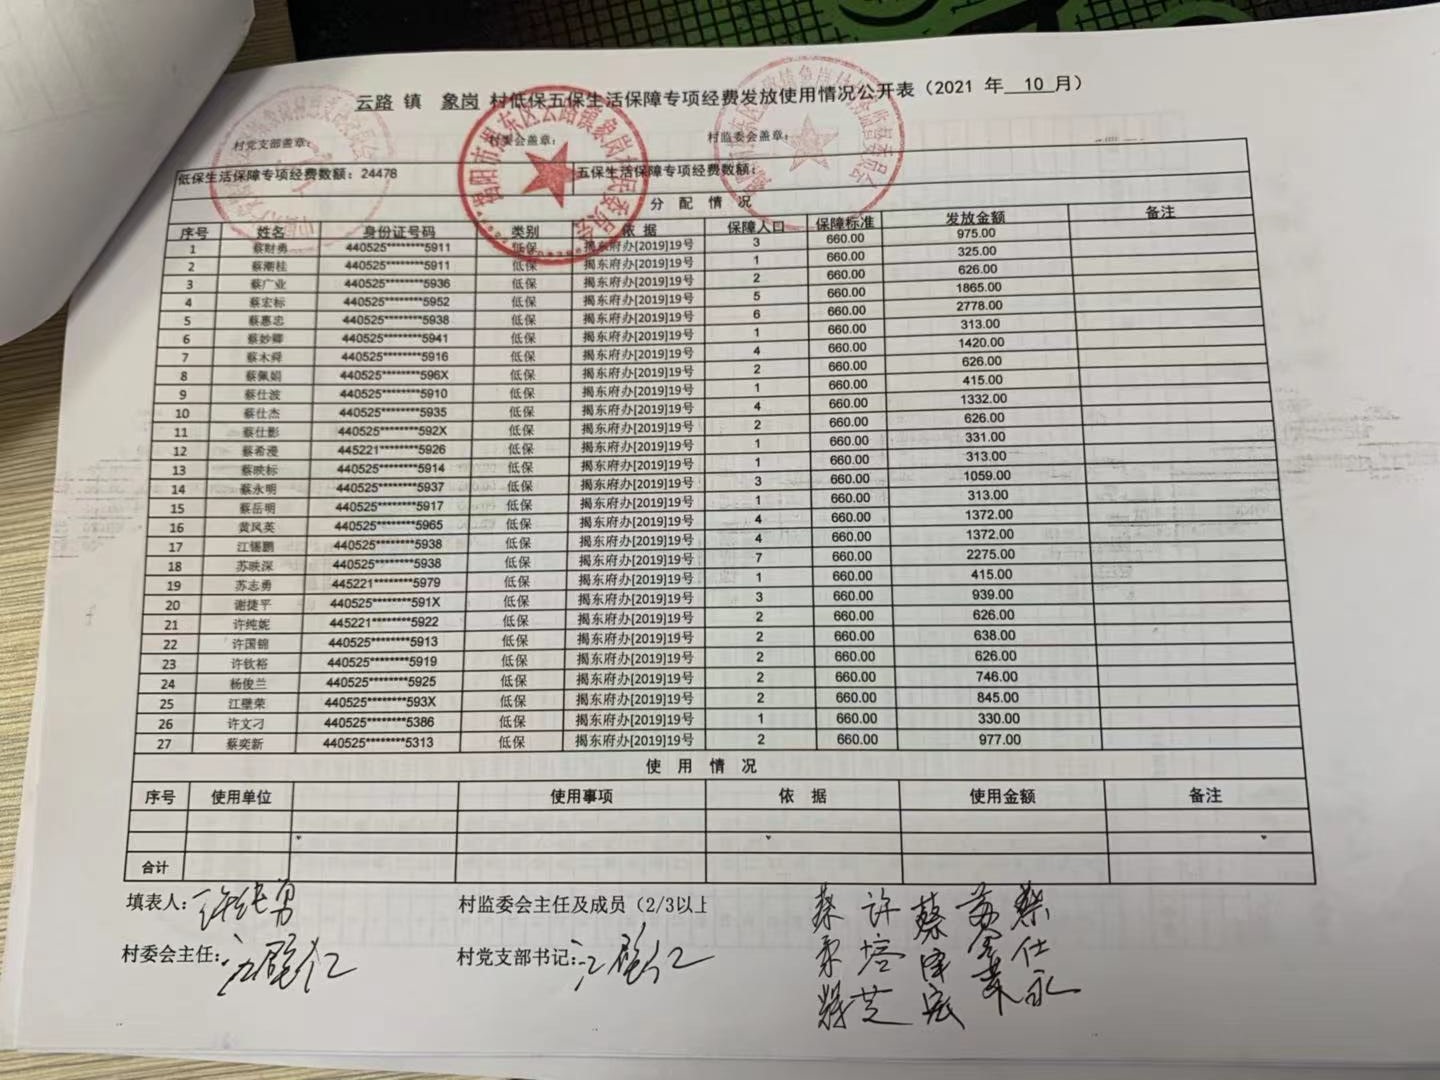 云路 镇 象岗 村低保五保生活保障专项经费发放使用情况公开表（2021 年 10 月）
村党支部盖章： 村委会盖章： 村监委会盖章：
低保生活保障专项经费数额：24478 五保生活保障专项经费数额：
分 配 情 况
序号 姓名 身份证号码 类别 依 据 保障人口 保障标准 发放金额 备注
1 蔡财勇 440525********5911 低保 揭东府办[2019]19号 3 660.00 975.00
2 蔡潮桂 440525********5911 低保 揭东府办[2019]19号 1 660.00 325.00
3 蔡广业 440525********5936 低保 揭东府办[2019]19号 2 660.00 626.00
4 蔡宏标 440525********5952 低保 揭东府办[2019]19号 5 660.00 1865.00
5 蔡惠忠 440525********5938 低保 揭东府办[2019]19号 6 660.00 2778.00
6 蔡妙卿 440525********5941 低保 揭东府办[2019]19号 1 660.00 313.00
7 蔡木舜 440525********5916 低保 揭东府办[2019]19号 4 660.00 1420.00
8 蔡佩娟 440525********596X 低保 揭东府办[2019]19号 2 660.00 626.00
9 蔡仕波 440525********5910 低保 揭东府办[2019]19号 1 660.00 415.00
10 蔡仕杰 440525********5935 低保 揭东府办[2019]19号 4 660.00 1332.00
11 蔡仕影 440525********592X 低保 揭东府办[2019]19号 2 660.00 626.00
12 蔡希漫 445221********5926 低保 揭东府办[2019]19号 1 660.00 331.00
13 蔡映标 440525********5914 低保 揭东府办[2019]19号 1 660.00 313.00
14 蔡永明 440525********5937 低保 揭东府办[2019]19号 3 660.00 1059.00
15 蔡岳明 440525********5917 低保 揭东府办[2019]19号 1 660.00 313.00
16 黄风英 440525********5965 低保 揭东府办[2019]19号 4 660.00 1372.00
17 江锡鹏 440525********5938 低保 揭东府办[2019]19号 4 660.00 1372.00
18 苏映深 440525********5938 低保 揭东府办[2019]19号 7 660.00 2275.00
19 苏志勇 445221********5979 低保 揭东府办[2019]19号 1 660.00 415.00
20 谢捷平 440525********591X 低保 揭东府办[2019]19号 3 660.00 939.00
21 许纯妮 445221********5922 低保 揭东府办[2019]19号 2 660.00 626.00
22 许国锦 440525********5913 低保 揭东府办[2019]19号 2 660.00 638.00
23 许钦裕 440525********5919 低保 揭东府办[2019]19号 2 660.00 626.00
24 杨俊兰 440525********5925 低保 揭东府办[2019]19号 2 660.00 746.00
25 江壁荣 440525********593X 低保 揭东府办[2019]19号 2 660.00 845.00
26 许文刁 440525********5386 低保 揭东府办[2019]19号 1 660.00 330.00
27 蔡奕新 440525********5313 低保 揭东府办[2019]19号 2 660.00 977.00
使 用 情 况
序号 使用单位 使用事项 依 据 使用金额 备注
合计
填表人： 村监委会主任及成员（2/3以上
村委会主任： 村党支部书记：